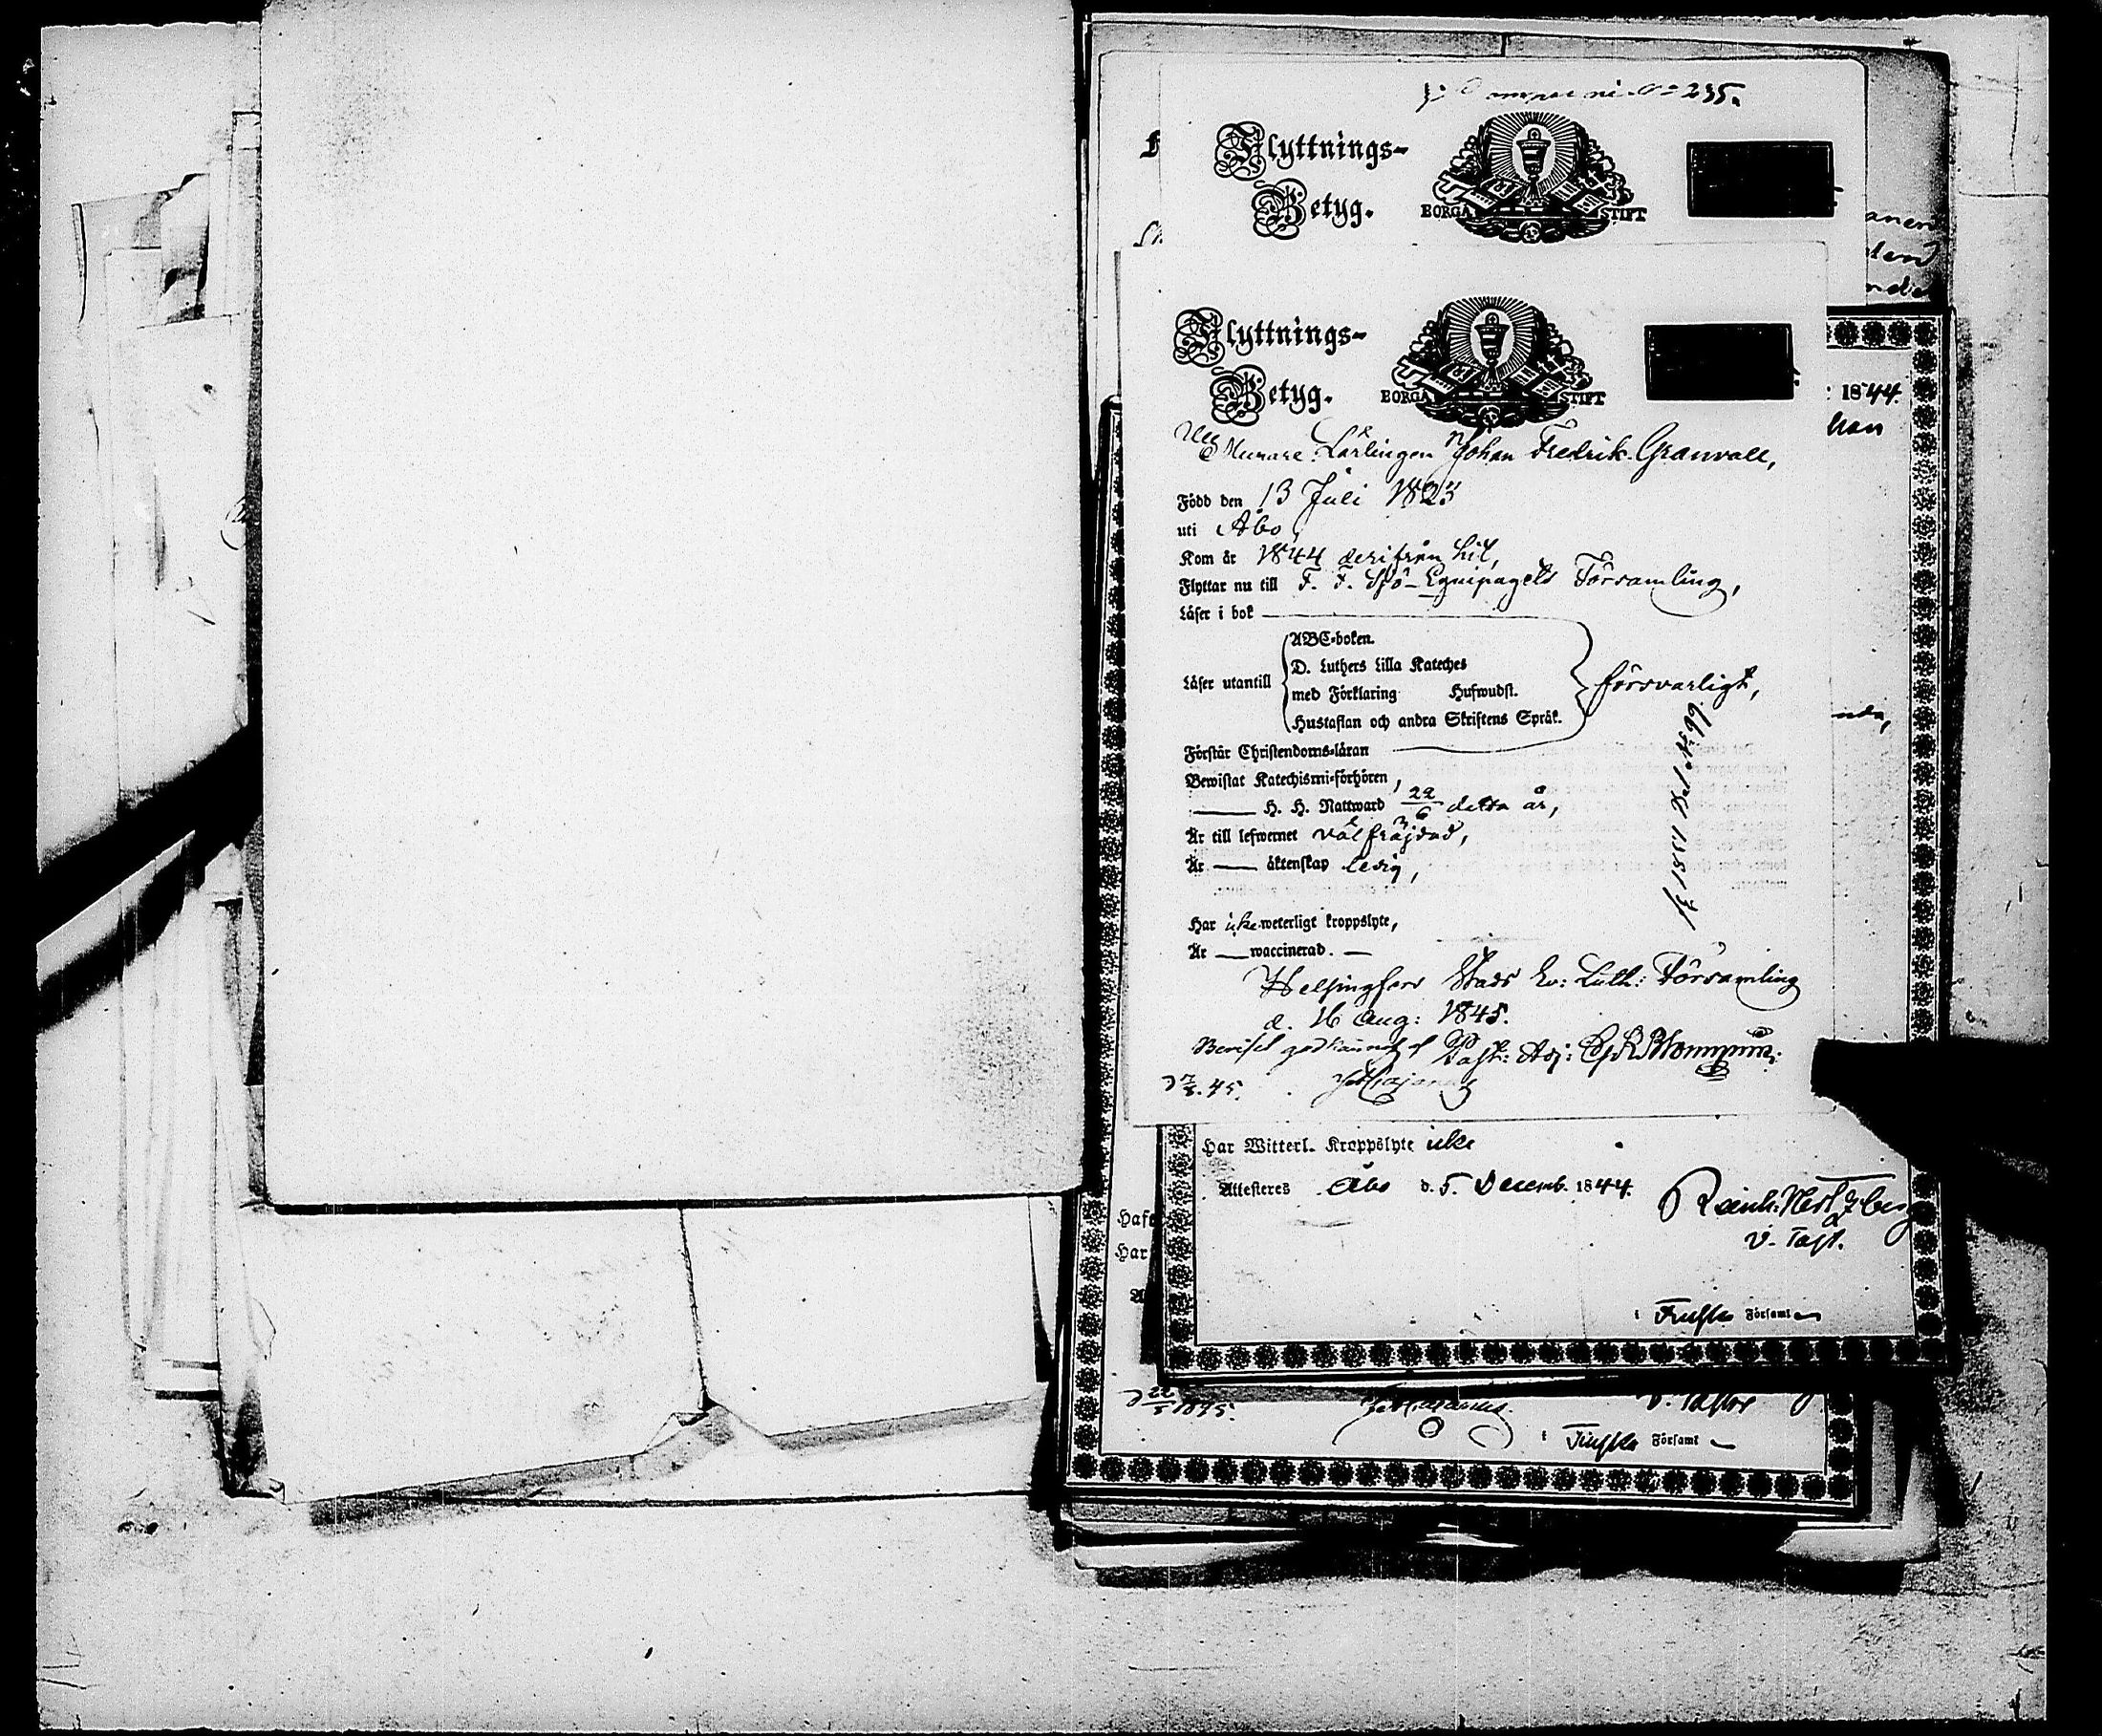 235.
Flyttnings-
Betyg.
BORGÅ STIFT
Flyttnings-
Betyg.
BORGÅ STIFT
: 1844.
Murare Lärlingen Johan Fredrik Granvall,
Född den 13 Juli 1823
uti Åbo,
Kom år 1844 derifrån hit,
Flyttar nu till F. F. Sjö-Equipagets Församling,
Läser i bok
Läser utantill
ABC-boken.
D. Luthers Lilla Kateches
med Förklaring Hufwudst.
Hustaflan och andra Skriftens Språk.
försvarligt,
Förstår Christendoms-läran
Bewistat Katechismi-förhören,
H. H. Nattward 22/6 detta år,
Är till lefwernet välfräjdad,
Är — äktenskap ledig,
Har icke weterligt kroppslyte,
Är — waccinerad. —
Helsingfors Stads Ev: Luth: Församling
d. 16 Aug: 1845.
Past: Adj:
Har Witterl. Kroppslyte icke
Attesteras Åbo d. 5. Decemb. 1844.
Reinh: Hertzberg
V. Past.
Haft
Har
1845.
V. Pastor
Församl
Församl